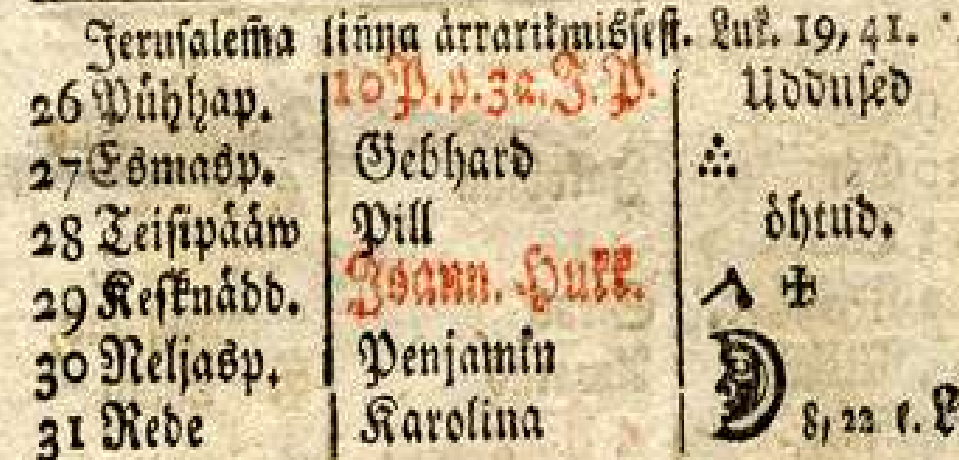 Jerusalem̃a liñna ärrarikmissest. Luk. 19, 41.
26 Pühhap. 10 P. p. 3a. J. P. Uddused
27 Esmasp. Gebhard
28 Teisipääw Pill öhtud.
29 Kesknädd. Joann. Hukk.
30 Neljasp. Penjamin
31 Rede Karolina 8, 22 k.